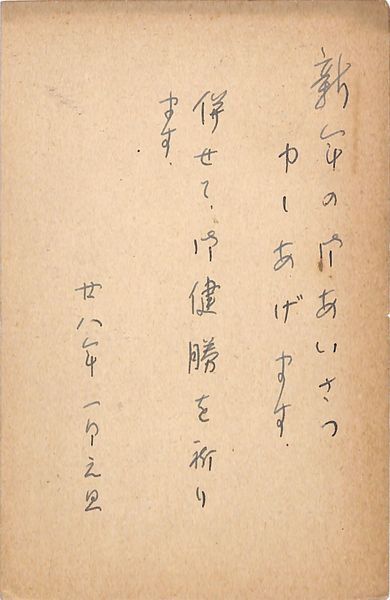 新年の御あいさつ
申しあげます.
併せて、御健勝を祈り
ます.
廿八年 一月元旦